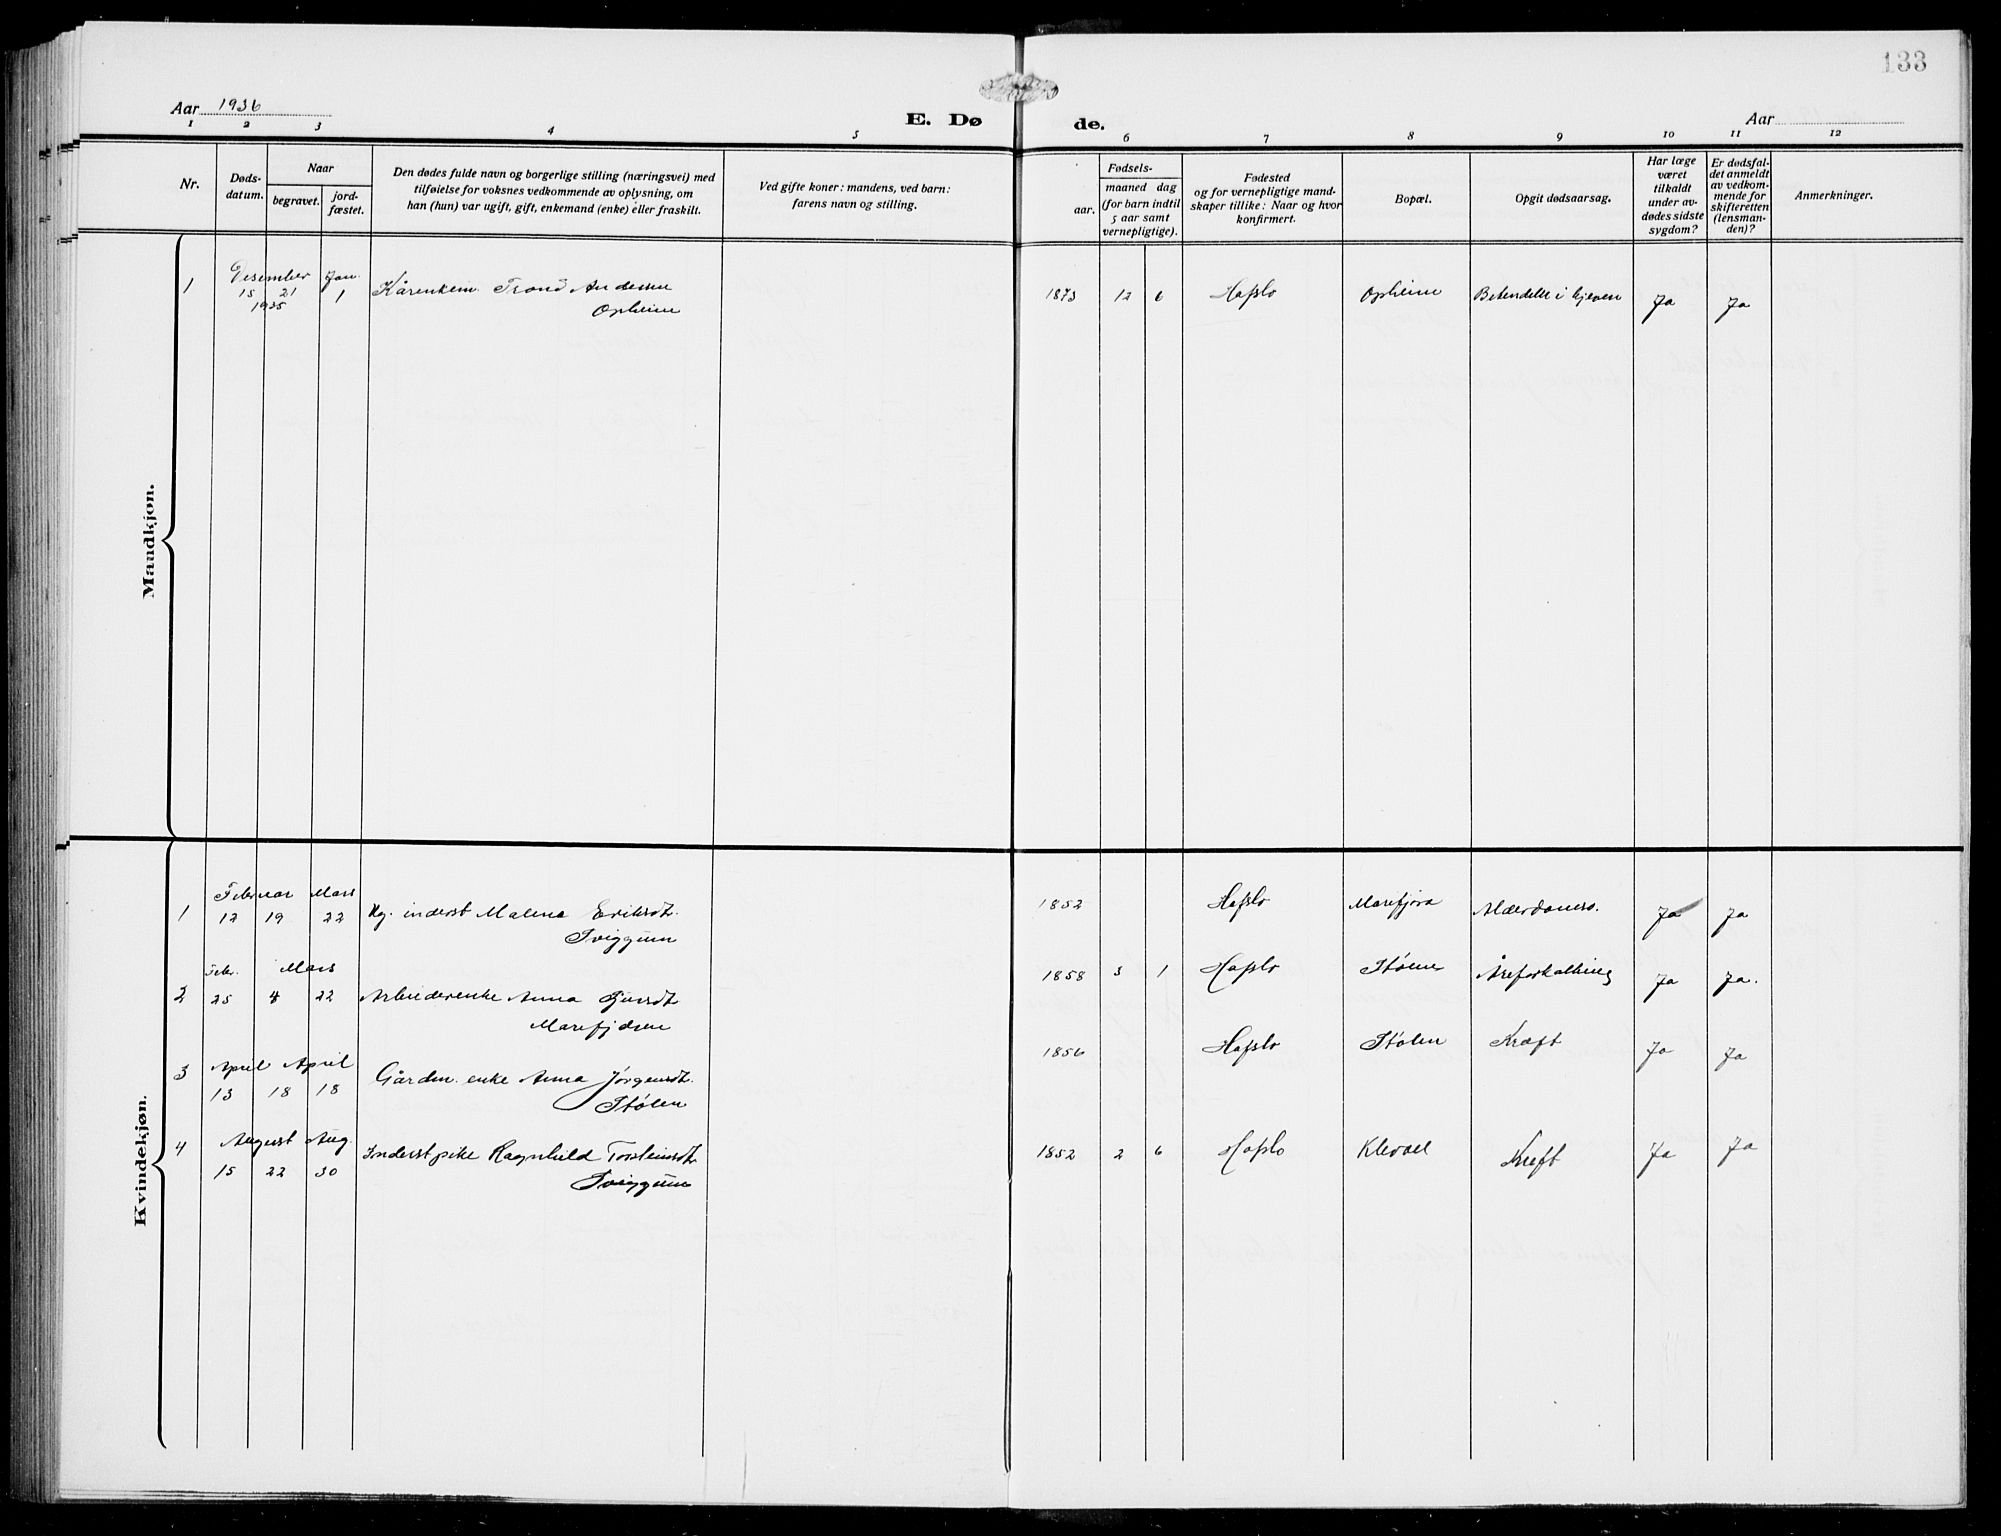 133
Aar 1936
E. Dø
de.
Aar
1 2 3 4 5 6 7 8 9 10 11 12
Nr.
Døds-
datum.
Naar
begravet.
jord-
fæstet.
Den dødes fulde navn og borgerlige stilling (næringsvei) med
tilføielse for voksnes vedkommende av oplysning, om
han (hun) var ugift, gift, enkemand (enke) eller fraskilt.
Ved gifte koner: mandens, ved barn:
farens navn og stilling.
Fødsels-
aar.
maaned dag
(for barn indtil
5 aar samt
vernepligtige).
Fødested
og for vernepligtige mand-
skaper tillike: Naar og hvor
konfirmert.
Bopæl.
Opgit dødsaarsag.
Har læge
været
tilkaldt
under av-
dødes sidste
sygdom?
Er dødsfal-
det anmeldt
av vedkom-
mende for
skifteretten
(lensman-
den)?
Anmerkninger.
Mandkjøn.
Desember Jan.
1 15 21 1 Kårenkem. Trond Andersen 1873 12 6 Hafslo Opheim Betendelse i hjernen Ja Ja
1935 Opheim
Kvindekjøn.
Februar Mars
1 12 19 22 Kg. inderst Malena Eriksdt. 1852 Hafslo Marifjøra Alderdomss. Ja Ja
Tviggum
Febr. Mars
2 25 4 22 Arbeiderenke Anna 1858 3 1 Hafslo Stølen Åreforkalkning Ja Ja.
Marifjøren
April April
3 13 18 18 Gårdm. enke Anna Jørgensdt. 1856 Hafslo Stølen Kræft Ja Ja
Stølen
August Aug.
4 15 22 30 Inderst pike Ragnhild Torsteinsdt. 1852 2 6 Hafslo Kreft Ja Ja
Tviggum